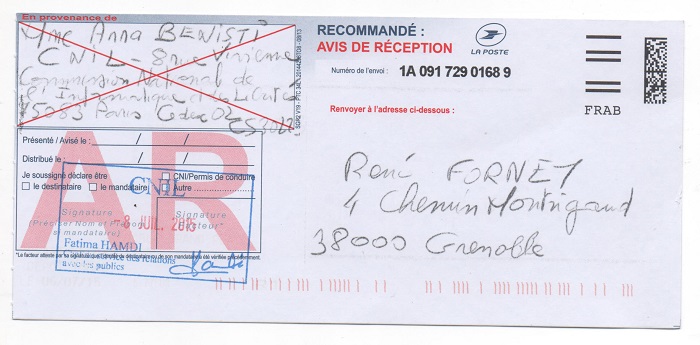 En provenance de
Mme Anna BENISTI
CNIL - 8 rue Vivienne
Commission National de
l'Informatique et de
75083 Paris Cedex 02
CS
RECOMMANDÉ :
AVIS DE RÉCEPTION
LA POSTE
Numéro de l'envoi : 1A 091 729 0168 9
FRAB
Renvoyer à l'adresse ci-dessous :
AR
Présenté / Avisé le : / /
Distribué le : / /
Je soussigné déclare être
le destinataire
le mandataire
CNI/Permis de conduire
Autre
CNIL
Signature
(Préciser Nom et
si mandataire)
Signature
- 8 JUIL.
Fatima HAMDI
Service des relations
avec les publics
René FORNEY
4 Chemin Montrigaud
38000 Grenoble